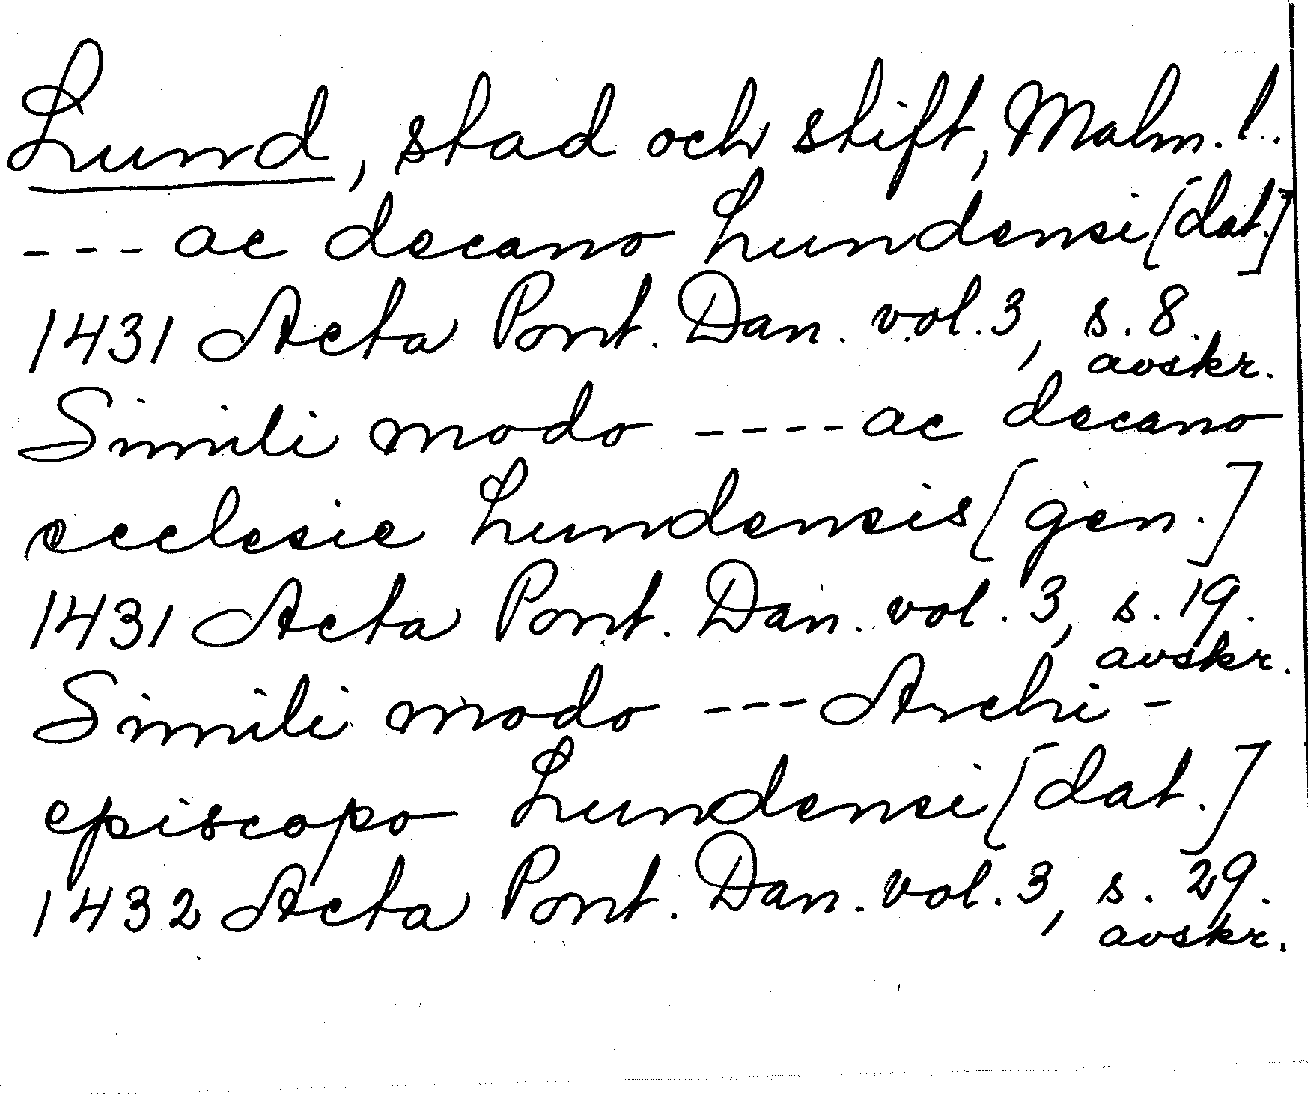 Lund, stad och stift, Malm. l.
--- ac decano Lundensi [dat.]
1431 Acta Pont. Dan. vol. 3, s. 8.
avskr.
Simili modo ---- ac decano
ecclesie Lundensis [gen.]
1431 Acta Pont. Dan. vol. 3, s. 19.
avskr.
Simili modo --- Archi-
episcopo Lundensi [dat.]
1432 Acta Pont. Dan. vol. 3, s. 29.
avskr.